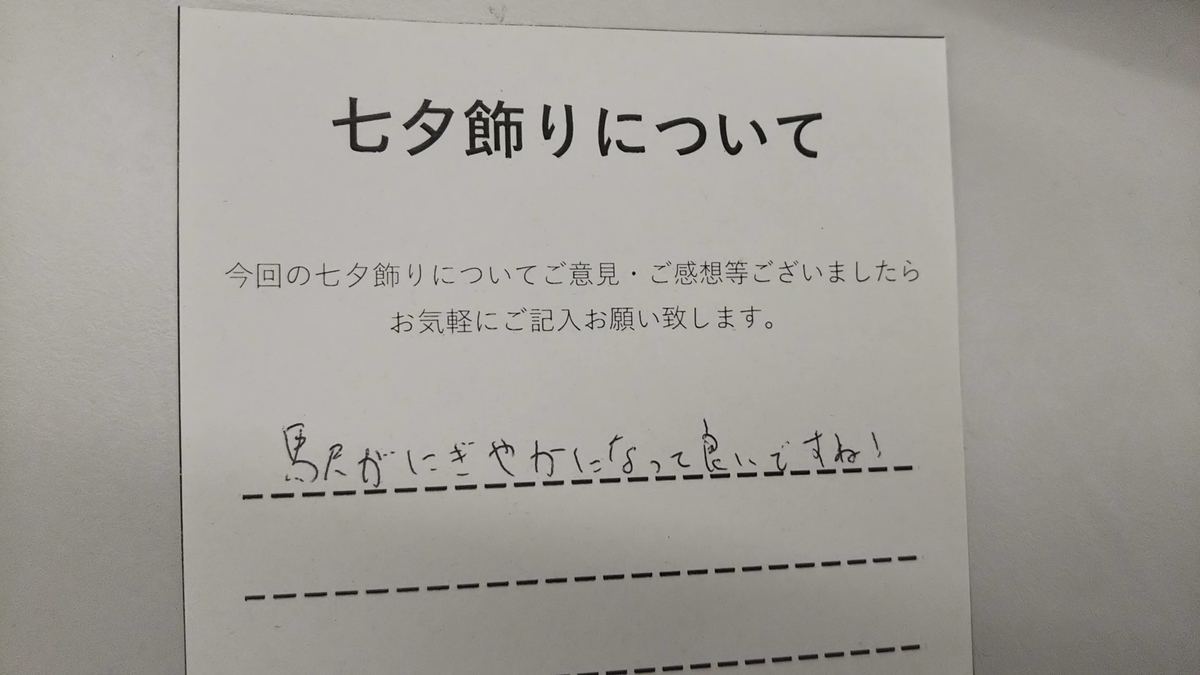 七夕飾りについて
今回の七夕飾りについてご意見・ご感想等ございましたら
お気軽にご記入お願い致します。
馬尺がにぎやかになって良いですね!